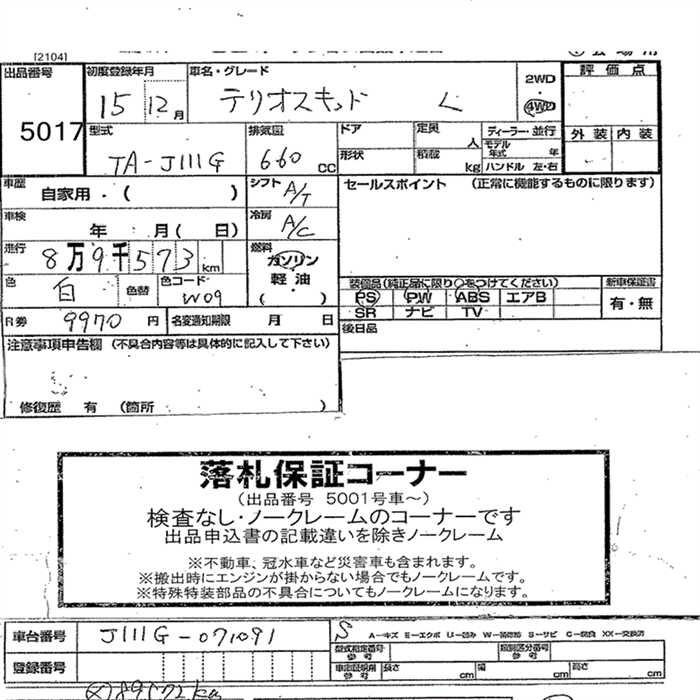 [2104]
出品番号 初度登録年月 車名・グレード 2WD 評価点
5017 15 12月 テリオスキッド L 4WD
型式 排気量 ドア 定員 人 ディーラー・並行 外装 内装
モデル年式 年
TA-J111G 660cc 形状 積載 kg ハンドル 左・右
車歴 自家用・( ) シフト A/T セールスポイント (正常に機能するものに限ります)
車検 年 月(日) 冷房 A/C
走行 8万9千573km 燃料 ガソリン
軽油
( )
色 白 色替 色コード W09 装備品(純正品に限り○をつけてください) 新車保証書
PS PW ABS エアB 有・無
SR ナビ TV
R券 9970円 名変通知期限 月 日 後日品
注意事項申告欄 (不具合内容等は具体的に記入して下さい)
修復歴 有 (箇所 )
落札保証コーナー
(出品番号 5001号車~)
検査なし・ノークレームのコーナーです
出品申込書の記載違いを除きノークレーム
※不動車、冠水車など災害車も含まれます。
※搬出時にエンジンが掛からない場合でもノークレームです。
※特殊特装部品の不具合についてもノークレームになります。
車台番号 J111G-071091 S A-キズ E-エクボ U-凹み W-補修跡 S-サビ C-腐食 XX-交換済
型式指定番号 参考 類別区分番号 参考
登録番号 車定証明別 参考 長さ cm 幅 cm 高さ cm